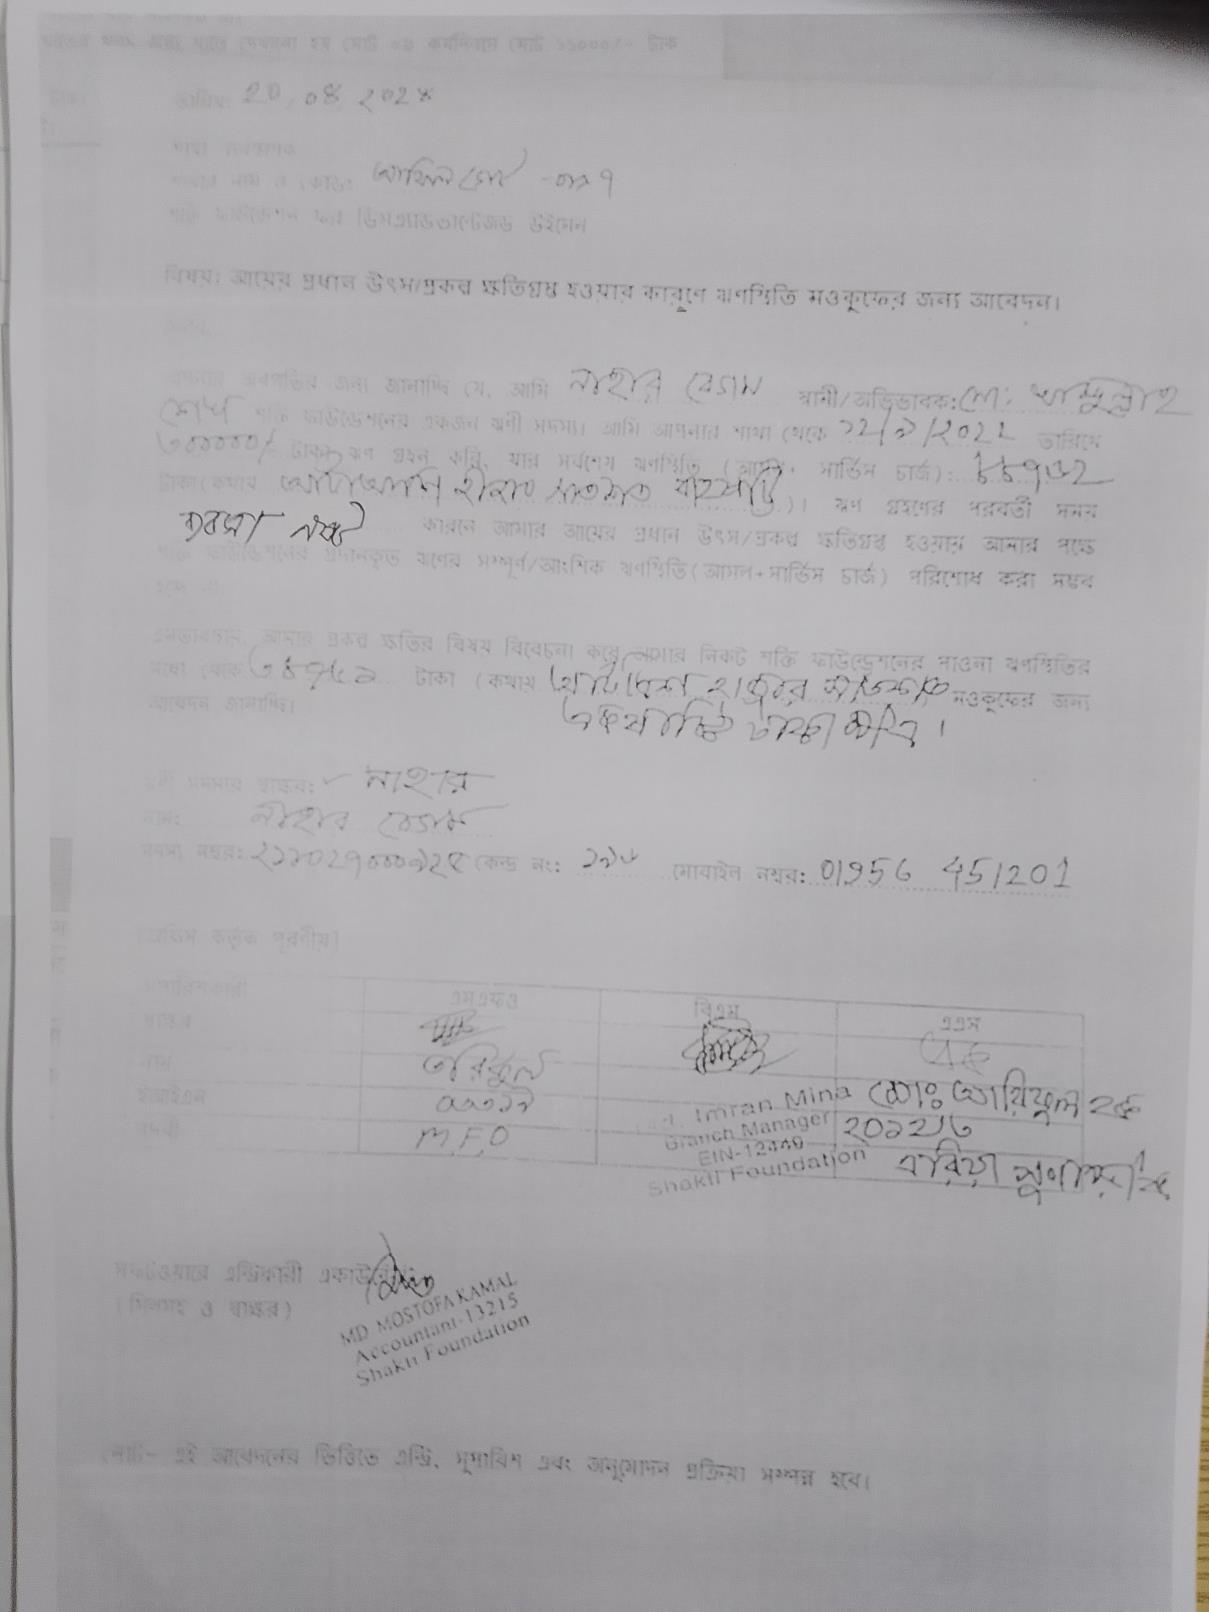 মোট ০৯ কর্মদিবসে মোট ১১০০০/- টাকা
তারিখ: ২০,০৪,২০২৪
শাখা ব্যবস্থাপক
শাখার নাম ও কোড:
শক্তি ফাউন্ডেশন ফর ডিসএ্যাডভান্টেজড উইমেন
বিষয়: আয়ের প্রধান উৎস/প্রকল্প ক্ষতিগ্রস্ত হওয়ার কারণে ঋণস্থিতি মওকুফের জন্য আবেদন।
জনাব,
অবগতির জন্য জানাচ্ছি যে, আমি নাহার বেগম স্বামী/অভিভাবক: মো:
শেখ শক্তি ফাউন্ডেশনের একজন ঋণী সদস্য। আমি আপনার শাখা থেকে ১২/৯/২০২২ তারিখে
৩০০০০০/- টাকা ঋণ গ্রহন করি, যার সর্বশেষ ঋণস্থিতি (আসল+ সার্ভিস চার্জ): ৮৮৭৬২
টাকা (কথায় হাজার সাতশত বাষট্টি)। ঋণ গ্রহণের পরবর্তী সময়
ব্যবসা নষ্ট কারনে আমার আয়ের প্রধান উৎস/প্রকল্প ক্ষতিগ্রস্ত হওয়ায় আমার পক্ষে
শক্তি ফাউন্ডেশনের প্রদানকৃত ঋণের সম্পূর্ণ/আংশিক ঋণস্থিতি (আসল+সার্ভিস চার্জ) পরিশোধ করা সম্ভব
হচ্ছে না।
এমতাবস্থায়, আমার প্রকল্প ক্ষতির বিষয় বিবেচনা করে, আমার নিকট শক্তি ফাউন্ডেশনের পাওনা ঋণস্থিতির
মধ্যে থেকে টাকা (কথায় হাজার সাতশত মওকুফের জন্য
আবেদন জানাচ্ছি। একষট্টি টাকা মাত্র।
ঋণী সদস্যের স্বাক্ষর: নাহার
নাম: নাহার বেগম
সদস্য নম্বর: কেন্দ্র নং: মোবাইল নম্বর: 01956 451201
(অফিস কর্তৃক পূরণীয়)
সুপারিশকারী এমএফও বিএম এএস
স্বাক্ষর
নাম তরিকুল Imran Mina মোঃ আরিফুল হক
ইআইএন Branch Manager ২০১২৬
পদবী M.F.O EIN-12449
Shakti Foundation এরিয়া সুপারভাইজার
সফটওয়ারে এন্ট্রিকারী একাউন্টেন্ট
(সিলসহ ও স্বাক্ষর)
MD. MOSTOFA KAMAL
Accountant-13215
Shakti Foundation
নোট:- এই আবেদনের ভিত্তিতে এন্ট্রি, সুপারিশ এবং অনুমোদন প্রক্রিয়া সম্পন্ন হবে।